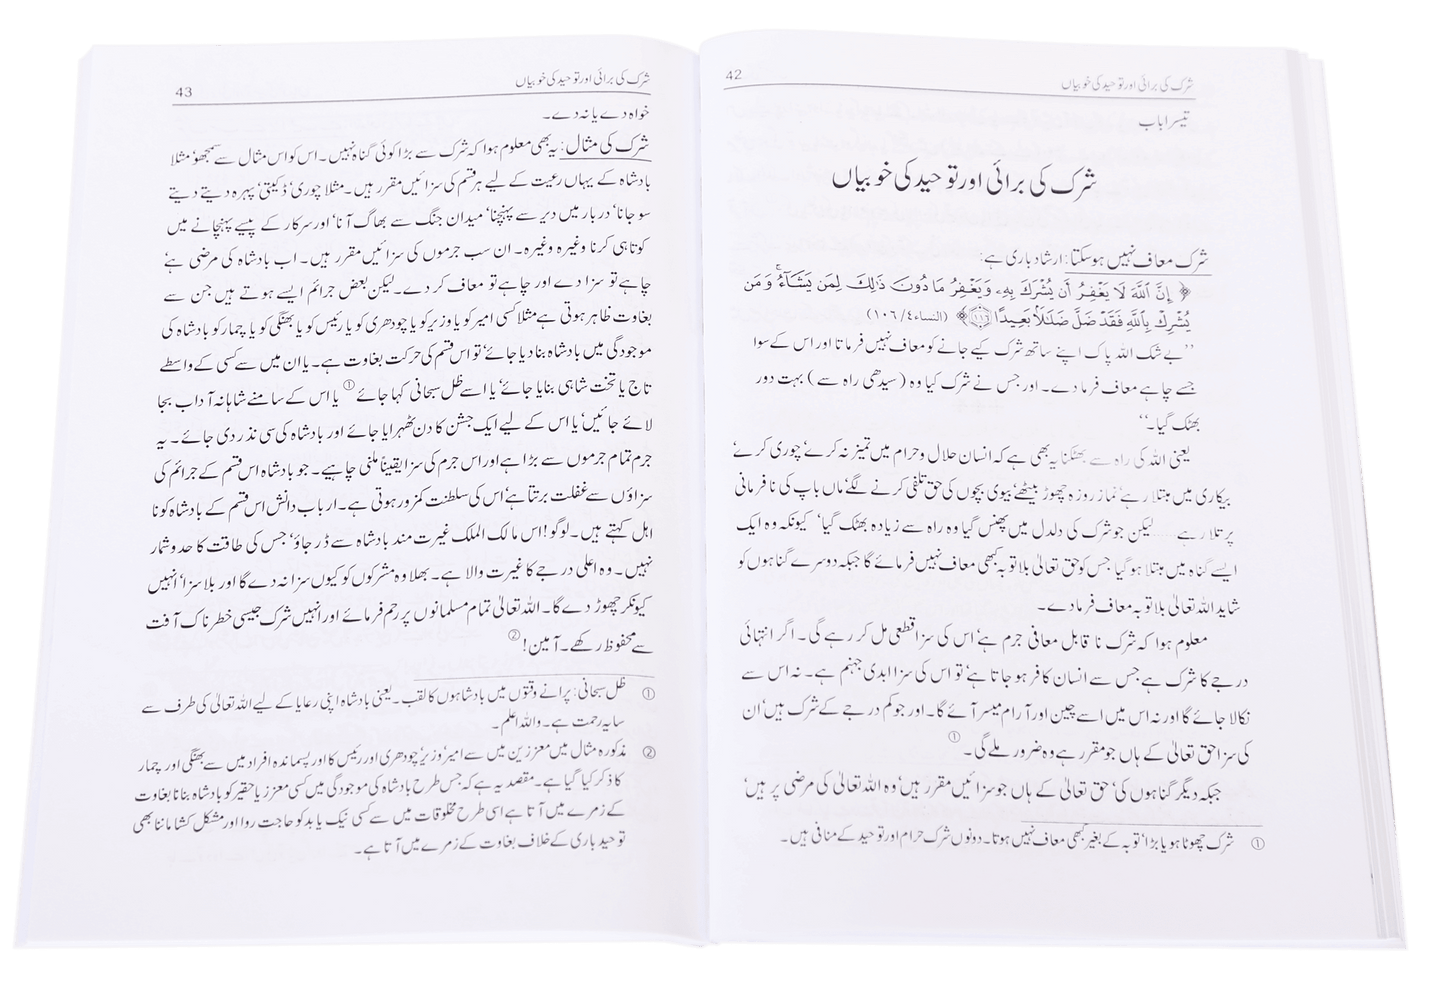 42
شرک کی برائی اور توحید کی خوبیاں
تیسرا باب
شرک کی برائی اور توحید کی خوبیاں
شرک معاف نہیں ہو سکتا: ارشاد باری ہے:
﴿ إِنَّ ٱللَّهَ لَا يَغْفِرُ أَن يُشْرَكَ بِهِۦ وَيَغْفِرُ مَا دُونَ ذَٰلِكَ لِمَن يَشَآءُ ۚ وَمَن
يُشْرِكْ بِٱللَّهِ فَقَدْ ضَلَّ ضَلَـٰلًۢا بَعِيدًا ۝١١٦﴾ (النساء٤/ ١٠٦)
’’بے شک اللہ پاک اپنے ساتھ شرک کیے جانے کو معاف نہیں فرماتا اور اس کے سوا
جسے چاہے معاف فرما دے۔ اور جس نے شرک کیا وہ (سیدھی راہ سے) بہت دور
بھٹک گیا۔‘‘
یعنی اللہ کی راہ سے بھٹکنا یہ بھی ہے کہ انسان حلال و حرام میں تمیز نہ کرے‘ چوری کرے‘
بیکاری میں مبتلا رہے‘ نماز روزہ چھوڑ بیٹھے‘ بیوی بچوں کی حق تلفی کرنے لگے‘ ماں باپ کی نافرمانی
پر تلا رہے……لیکن جو شرک کی دلدل میں پھنس گیا وہ راہ سے زیادہ بھٹک گیا‘ کیونکہ وہ ایک
ایسے گناہ میں مبتلا ہو گیا جس کو حق تعالیٰ بلا توبہ کبھی معاف نہیں فرمائے گا جبکہ دوسرے گناہوں کو
شاید اللہ تعالیٰ بلا توبہ معاف فرما دے۔
معلوم ہوا کہ شرک نا قابل معافی جرم ہے‘ اس کی سزا قطعی مل کر رہے گی۔ اگر انتہائی
درجے کا شرک ہے جس سے انسان کافر ہو جاتا ہے‘ تو اس کی سزا ابدی جہنم ہے۔ نہ اس سے
نکالا جائے گا اور نہ اس میں اسے چین اور آرام میسر آئے گا۔ اور جو کم درجے کے شرک ہیں‘ ان
کی سزا حق تعالیٰ کے ہاں جو مقرر ہے وہ ضرور ملے گی۔ ①
جبکہ دیگر گناہوں کی‘ حق تعالیٰ کے ہاں جو سزائیں مقرر ہیں‘ وہ اللہ تعالیٰ کی مرضی پر ہیں‘
① شرک چھوٹا ہو یا بڑا‘ توبہ کے بغیر کبھی معاف نہیں ہوتا۔ دونوں شرک حرام اور توحید کے منافی ہیں۔
43
شرک کی برائی اور توحید کی خوبیاں
خواہ دے یا نہ دے۔
شرک کی مثال: یہ بھی معلوم ہوا کہ شرک سے بڑا کوئی گناہ نہیں۔ اس کو اس مثال سے سمجھو‘ مثلا
بادشاہ کے یہاں رعیت کے لیے ہر قسم کی سزائیں مقرر ہیں۔ مثلا چوری‘ ڈکیتی‘ پہرہ دیتے دیتے
سو جانا‘ دربار میں دیر سے پہنچنا‘ میدان جنگ سے بھاگ آنا‘ اور سرکار کے پیسے پہنچانے میں
کوتاہی کرنا وغیرہ وغیرہ۔ ان سب جرموں کی سزائیں مقرر ہیں۔ اب بادشاہ کی مرضی ہے‘
چاہے تو سزا دے اور چاہے تو معاف کر دے۔ لیکن بعض جرائم ایسے ہوتے ہیں جن سے
بغاوت ظاہر ہوتی ہے مثلا کسی امیر کو یا وزیر کو یا چودھری کو یا رئیس کو یا بھنگی کو یا چمار کو بادشاہ کی
موجودگی میں بادشاہ بنا دیا جائے‘ تو اس قسم کی حرکت بغاوت ہے۔ یا ان میں سے کسی کے واسطے
تاج یا تخت شاہی بنایا جائے‘ یا اسے ظل سبحانی کہا جائے① یا اس کے سامنے شاہانہ آداب بجا
لائے جائیں‘ یا اس کے لیے ایک جشن کا دن ٹھہرایا جائے اور بادشاہ کی سی نذر دی جائے۔ یہ
جرم تمام جرموں سے بڑا ہے اور اس جرم کی سزا یقیناً ملنی چاہیے۔ جو بادشاہ اس قسم کے جرائم کی
سزاؤں سے غفلت برتتا ہے‘ اس کی سلطنت کمزور ہوتی ہے۔ ارباب دانش اس قسم کے بادشاہ کو نا
اہل کہتے ہیں۔ لوگو! اس مالک الملک غیرت مند بادشاہ سے ڈر جاؤ‘ جس کی طاقت کا حد و شمار
نہیں۔ وہ اعلی درجے کا غیرت والا ہے۔ بھلا وہ مشرکوں کو کیوں سزا نہ دے گا اور بلا سزا‘ انہیں
کیونکر چھوڑ دے گا۔ اللہ تعالیٰ تمام مسلمانوں پر رحم فرمائے اور انہیں شرک جیسی خطرناک آفت
سے محفوظ رکھے۔ آمین! ②
① ظل سبحانی: پرانے وقتوں میں بادشاہوں کا لقب۔ یعنی بادشاہ اپنی رعایا کے لیے اللہ تعالیٰ کی طرف سے
سایہ رحمت ہے۔ واللہ اعلم۔
② مذکورہ مثال میں معززین میں سے امیر‘ وزیر‘ چودھری اور رئیس کا اور پسماندہ افراد میں سے بھنگی اور چمار
کا ذکر کیا گیا ہے۔ مقصد یہ ہے کہ جس طرح بادشاہ کی موجودگی میں کسی معزز یا حقیر کو بادشاہ بنانا بغاوت
کے زمرے میں آتا ہے اسی طرح مخلوقات میں سے کسی نیک یا بد کو حاجت روا اور مشکل کشا ماننا بھی
توحید باری کے خلاف بغاوت کے زمرے میں آتا ہے۔